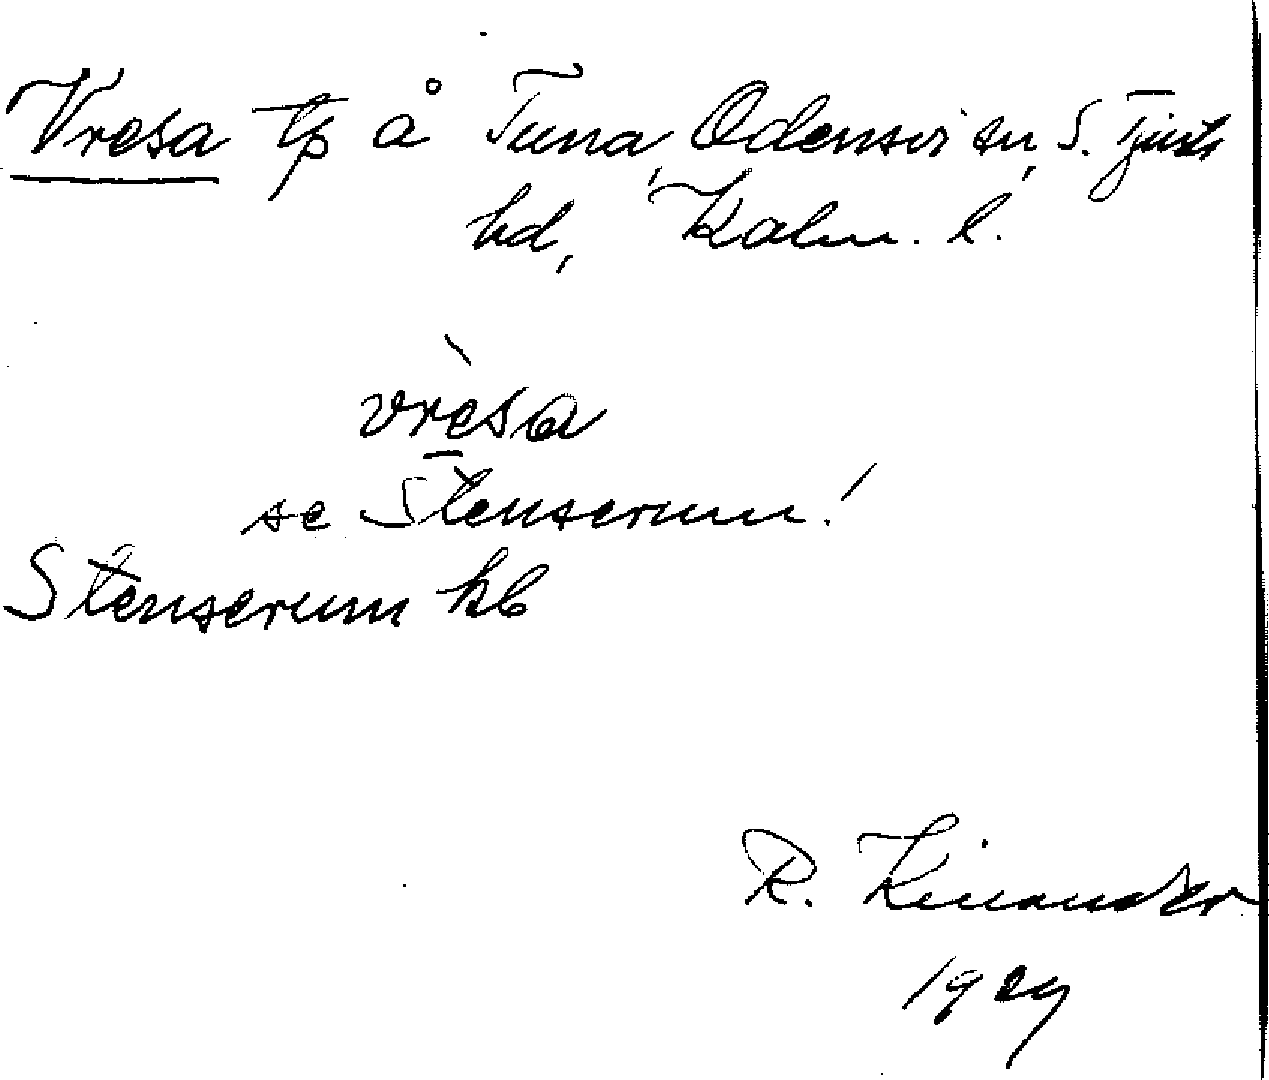 Vresa tp å Tuna, Odensvi sn, S. Tjusts
hd, Kalm. l.
vrèsa
se Stenserum!
Stenserum kb
R. Kinander
1929